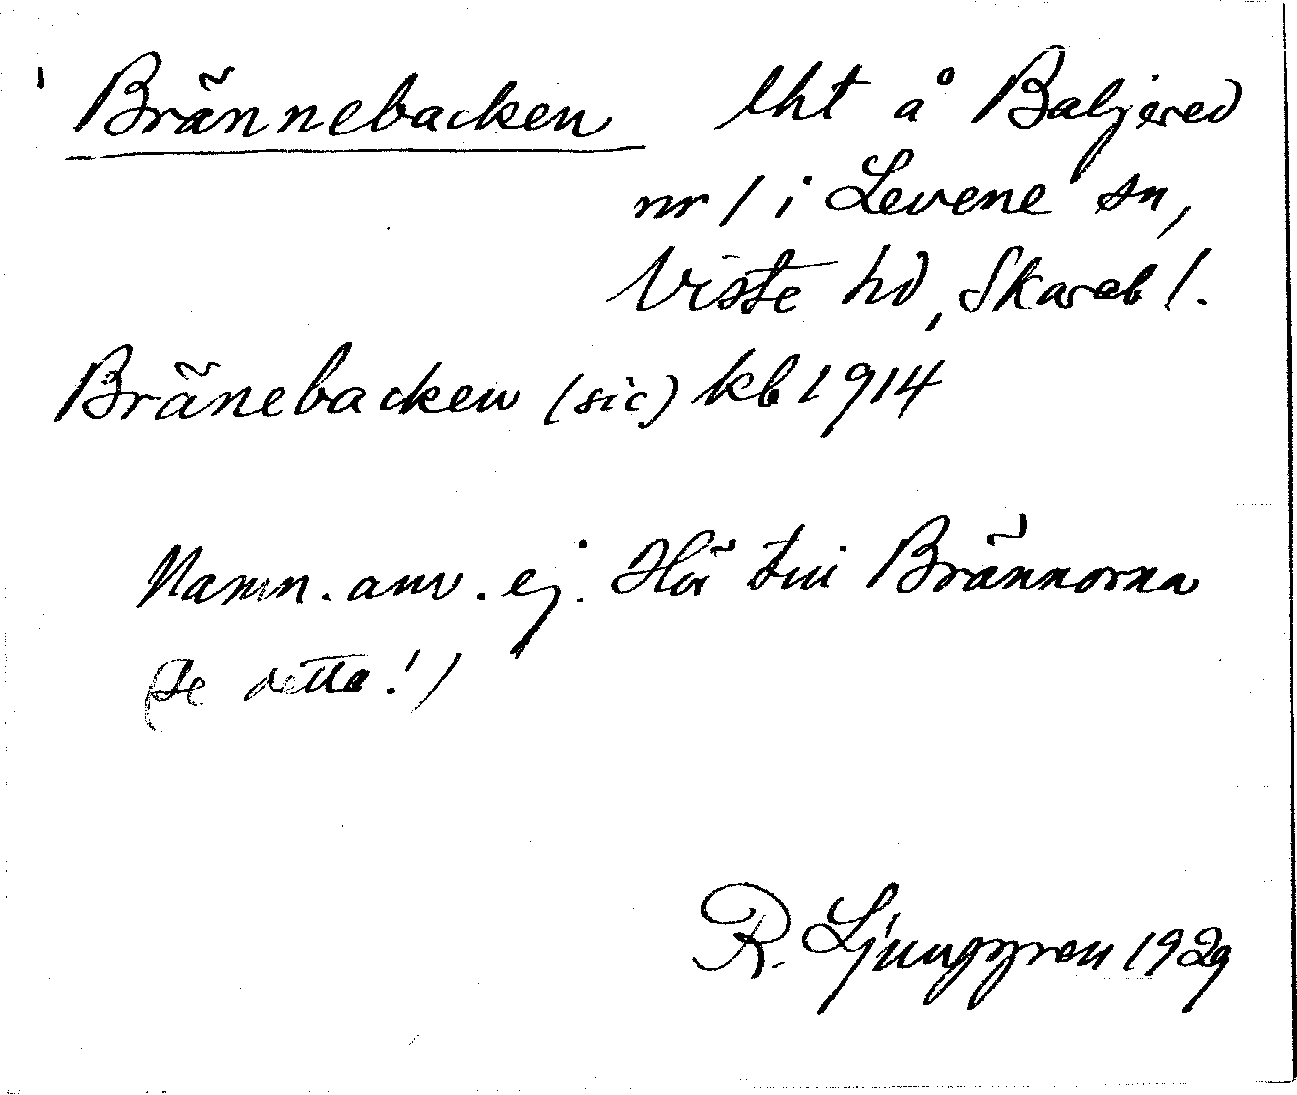 Brännebacken lht å Baljered
nr 1 i Levene sn,
Viste hd, Skarab l.
Bränebacken (sic) kb 1914
Namn. anv. ej. Hör till Brännorna
(se detta!)
R. Ljunggren 1929